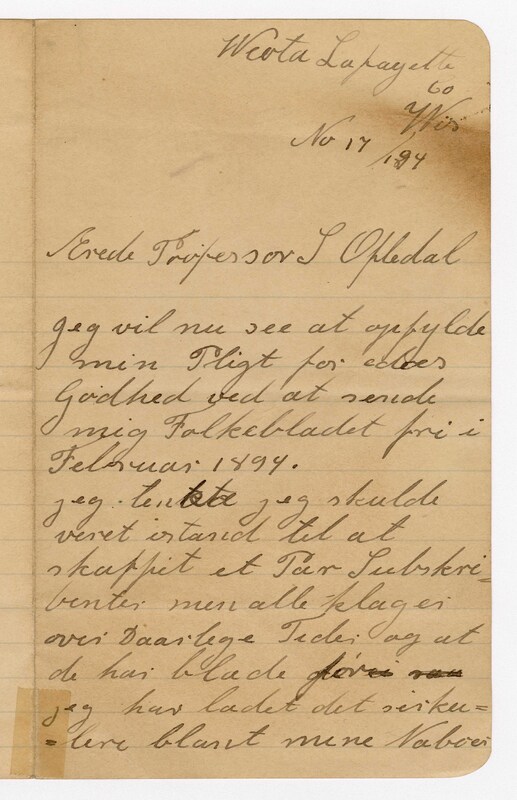 Wiota Lafayette
Co
Wis
No 17/194
Ærede Professor S Oftedal
jeg vil nu see at opfylde
min Pligt for eders
Godhed ved at sende
mig Folkebladet fri i
Februar 1894.
jeg tenkte jeg skulde
veret istand til at
skaffet et Par Subskri=
benter men alle klager
over Daarlege Tider og at
de har blade før
jeg har ladet det sirku=
=lere blant mine Naboer